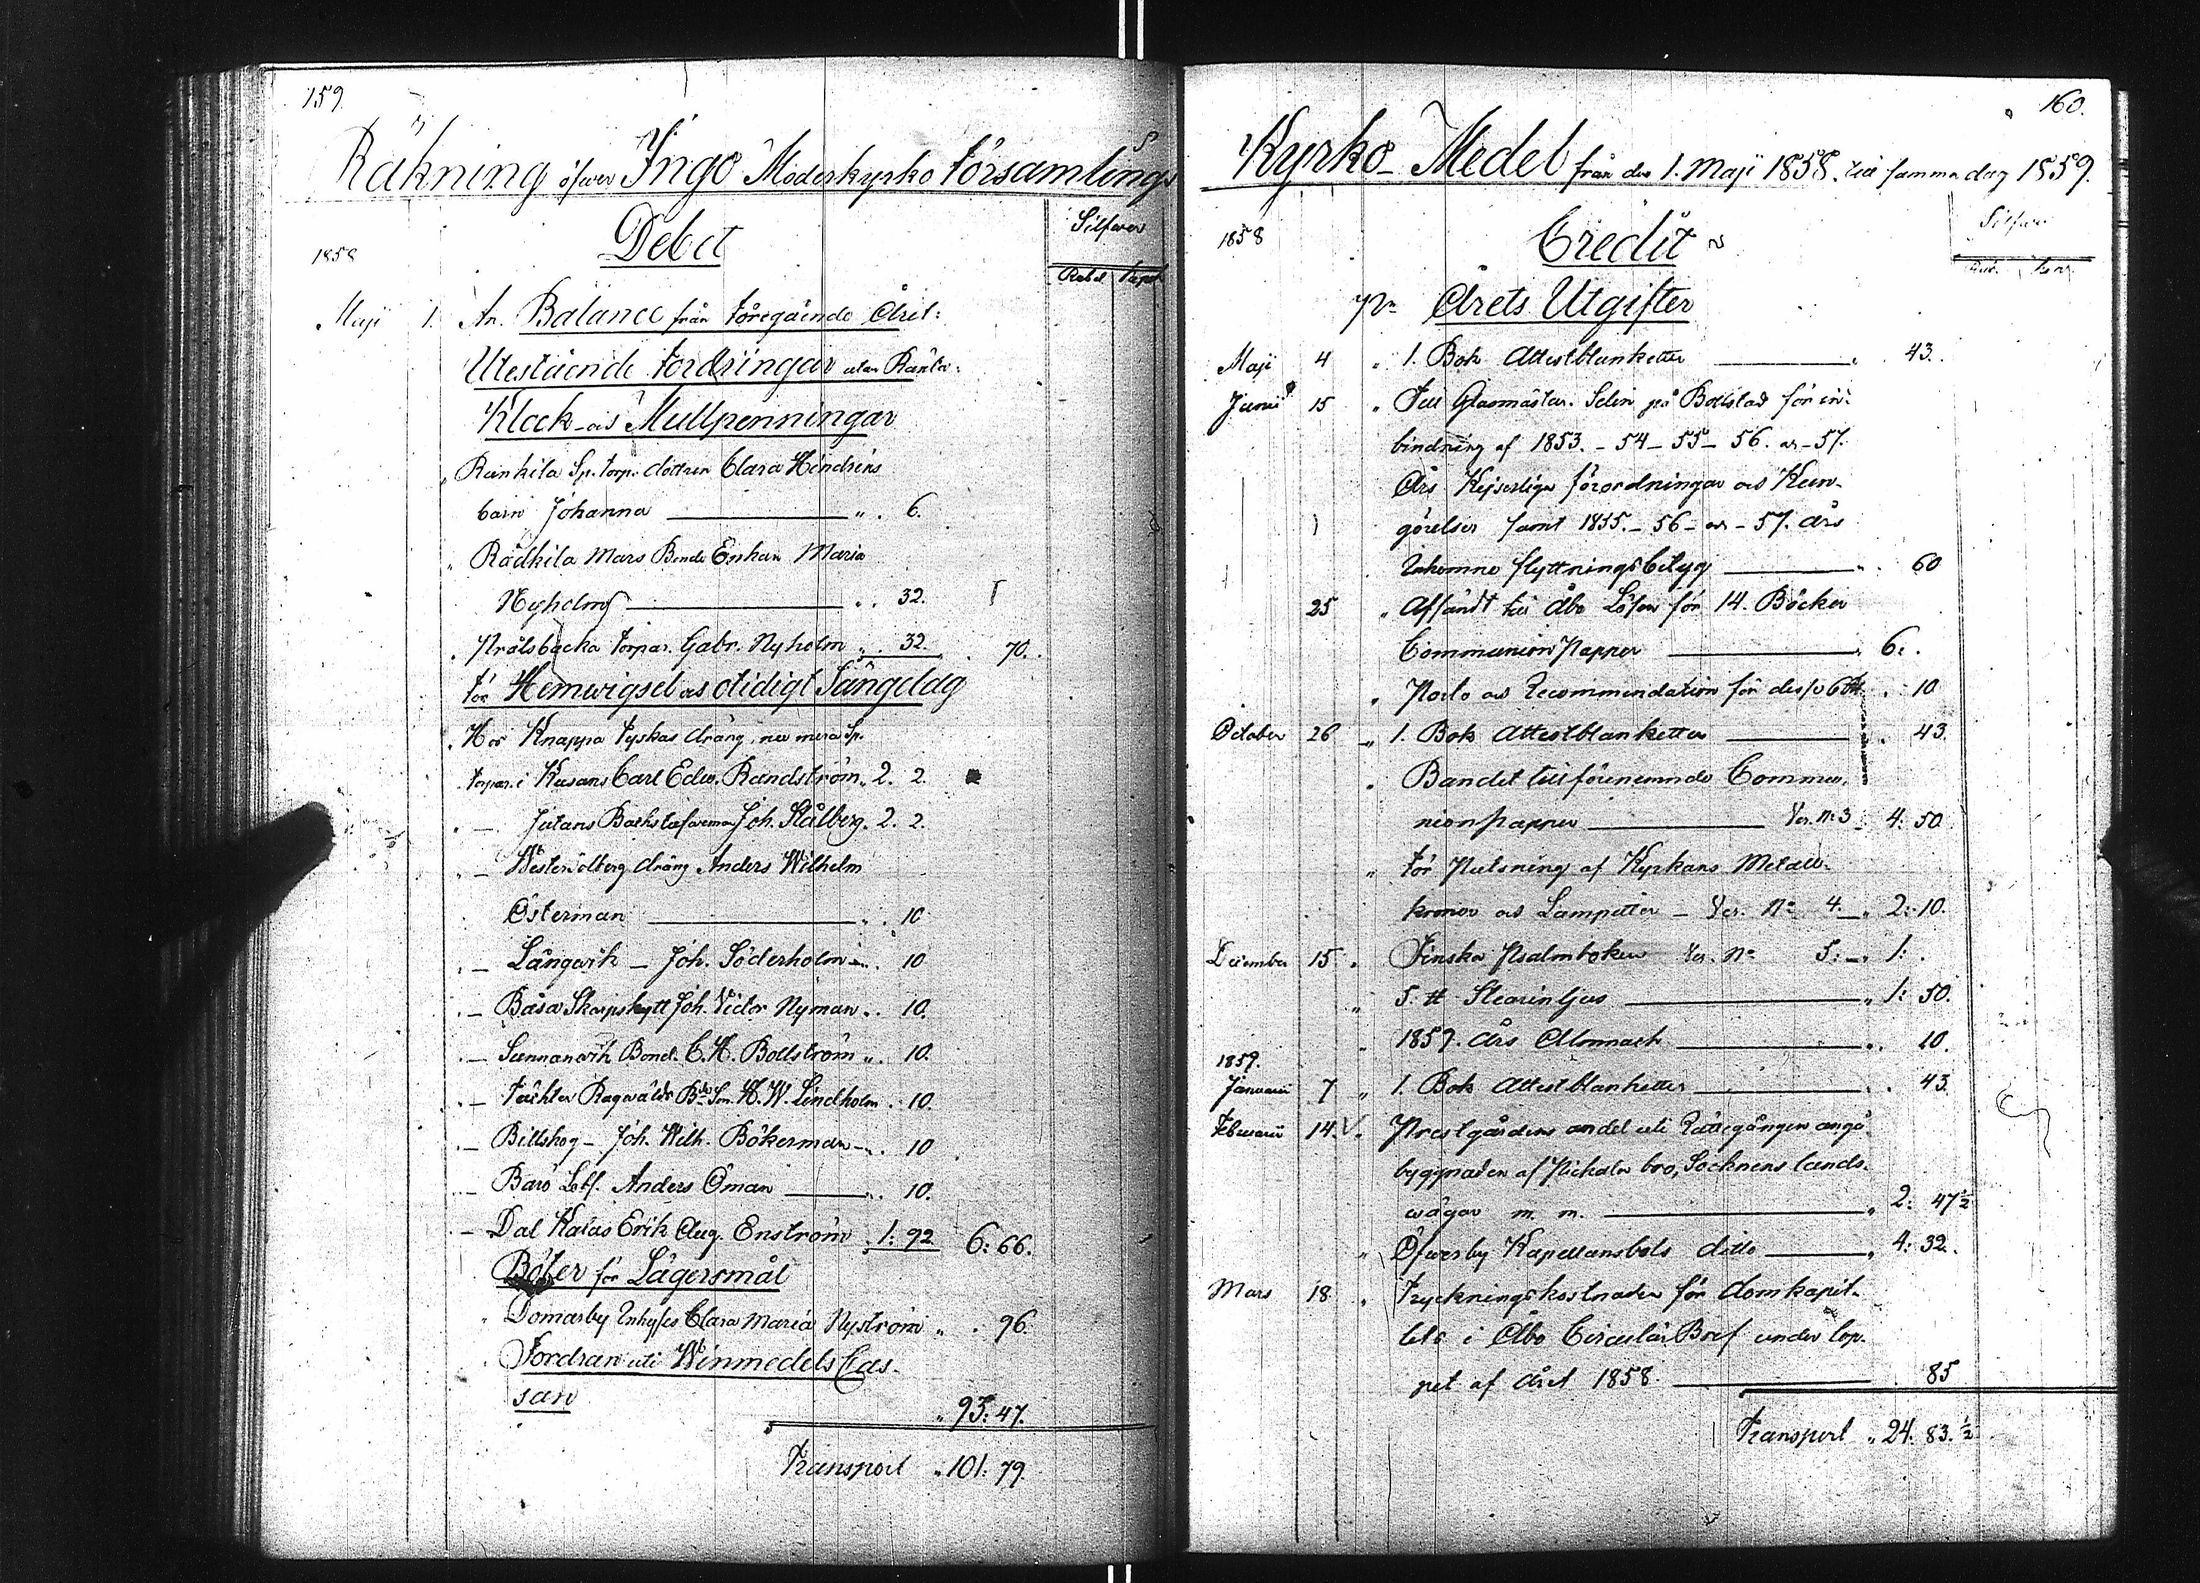 159.
Räkning öfwer Ingo Moderkyrko Församlings
Debet
Silfwer
1858
Rubel Kop.
Maji 1. An. Balance från föregående Året:
Utestående Fordringar utan Ränta:
Klock- och Mullpenningar
" Rankila Sp. torp. dottren Clara Hindrins
barn Johanna " . 6.
" Rådkila Mars Bonde Enkan Maria
Nyholm " . 32.
" Prålsbacka torpar. Gabr. Nyholm " . 32. . 70.
för Hemwigsel och otidigt Sängelag
" Hos Knappa Tyskas dräng, nu mera Sp.
torpar. i Kusans Carl Edw. Randström " 2. 2.
" — Jutans Backstufareman Joh. Stålberg " 2. 2.
" — dräng Anders Wilhelm
Österman " . 10
" — Långwik — Joh. Söderholm — " . 10
" — Båsa Skarpskytt Joh. Victor Nyman " . 10.
" — Sunnanwik Bond. C. H. Bollström " . 10.
" — Täckter Ragwalds Bde Son H. W. Lindholm " . 10.
" — Billskog — Joh. Wilh. Bökerman — " . 10
" — Barö Lots. Anders Öman " . 10.
" — Dal Kalas Erik Aug. Enström " 1: 92. 6: 66.
Böter för Lägersmål
" Domarby Inhyses Clara Maria Nyström " . 96.
Fordran uti Winmedels Cas-
san " 93: 47.
Transport " 101: 79.
160.
Kyrko- Medel från den 1. Maji 1858. till samma dag 1859.
Credit
Silfwer
1858
Rub. Kop.
Pr Årets Utgifter
Maji 4 " 1. Bok Attestblanketter " . 43.
Junii 15 " Till Glasmästar. Selin på Bollstad för in-
bindning af 1853. - 54 - 55 - 56. och - 57.
Års Kejserliga förordningar och Kun-
görelser samt 1855. - 56 - och - 57. års
Inkomne flyttningsbetyg " . 60
25 " Afsändt till Åbo Lösen för 14. Böcker
Communion Papper " 6: .
" Porto och Recommendation för dess 6 " . 10
October 26 " 1. Bok Attestblanketter " . 43.
" Bandet till förenemnde Commu-
nionpapper Ver. No 3 " 4: 50
" för Putsning af Kyrkans Metall-
kronor och Lampetter — Ver. No 4. — " 2: 10.
December 15 " Finska Psalmboken Ver. No 5: — " 1: .
" 5. ℔ Stearin ljus " 1: 50.
" 1859. års Almanach " . 10.
1859.
Januarii 7 " 1. Bok Attestblanketter " . 43.
Februarii 14. " Prestgårdens andel uti Rättegången angå.
byggnaden af Pickala bro, Socknens lands-
wägar m. m. " 2: 47½
" Öfwerby Kapellansbols ditto " 4: 32.
Mars 18 " Tryckningskostnaden för domkapit-
lets i Åbo Circulär Bref under lop-
pet af året 1858. . 85
Transport " 24: 83.½